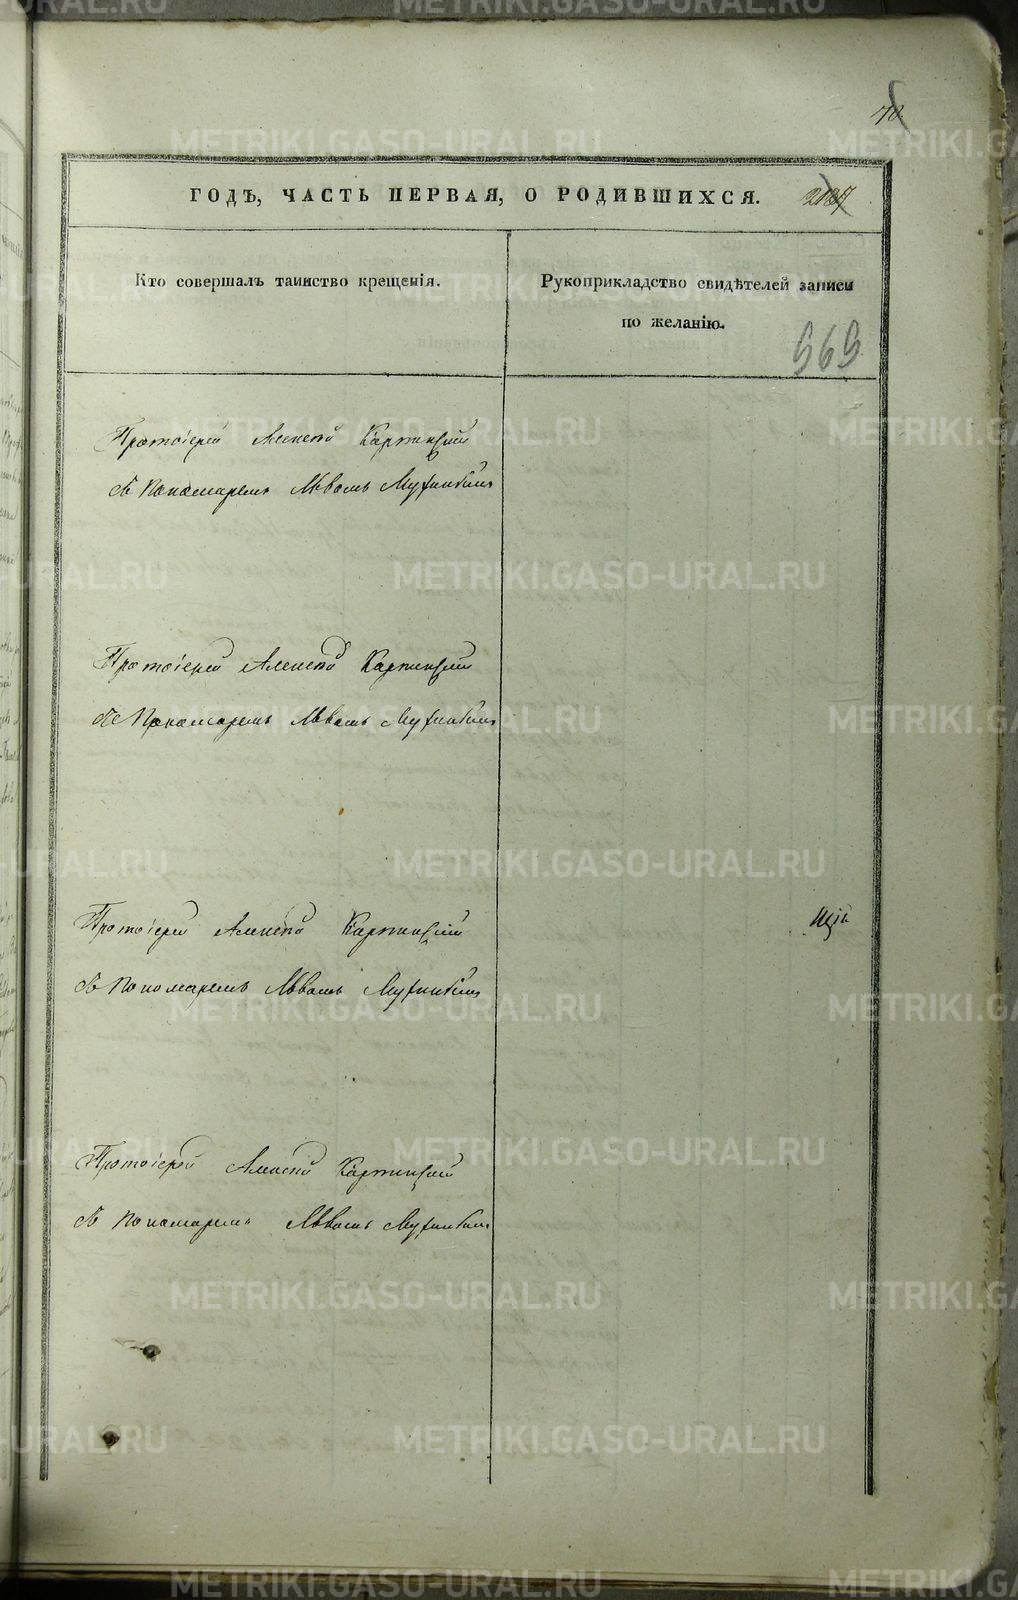 70
ГОДЪ, ЧАСТЬ ПЕРВАЯ, О РОДИВШИХСЯ.
Кто совершалъ таинство крещенія.
Рукоприкладство свидѣтелей записи
по желанію.
569
Протоіерей Алексѣй Карпинскій
съ Пономаремъ Львомъ
Протоіерей Алексѣй Карпинскій
съ Пономаремъ Львомъ
Протоіерей Алексѣй Карпинскій
съ Пономаремъ Львомъ
Протоіерей Алексѣй Карпинскій
съ Пономаремъ Львомъ
METRIKI.GASO-URAL.RU